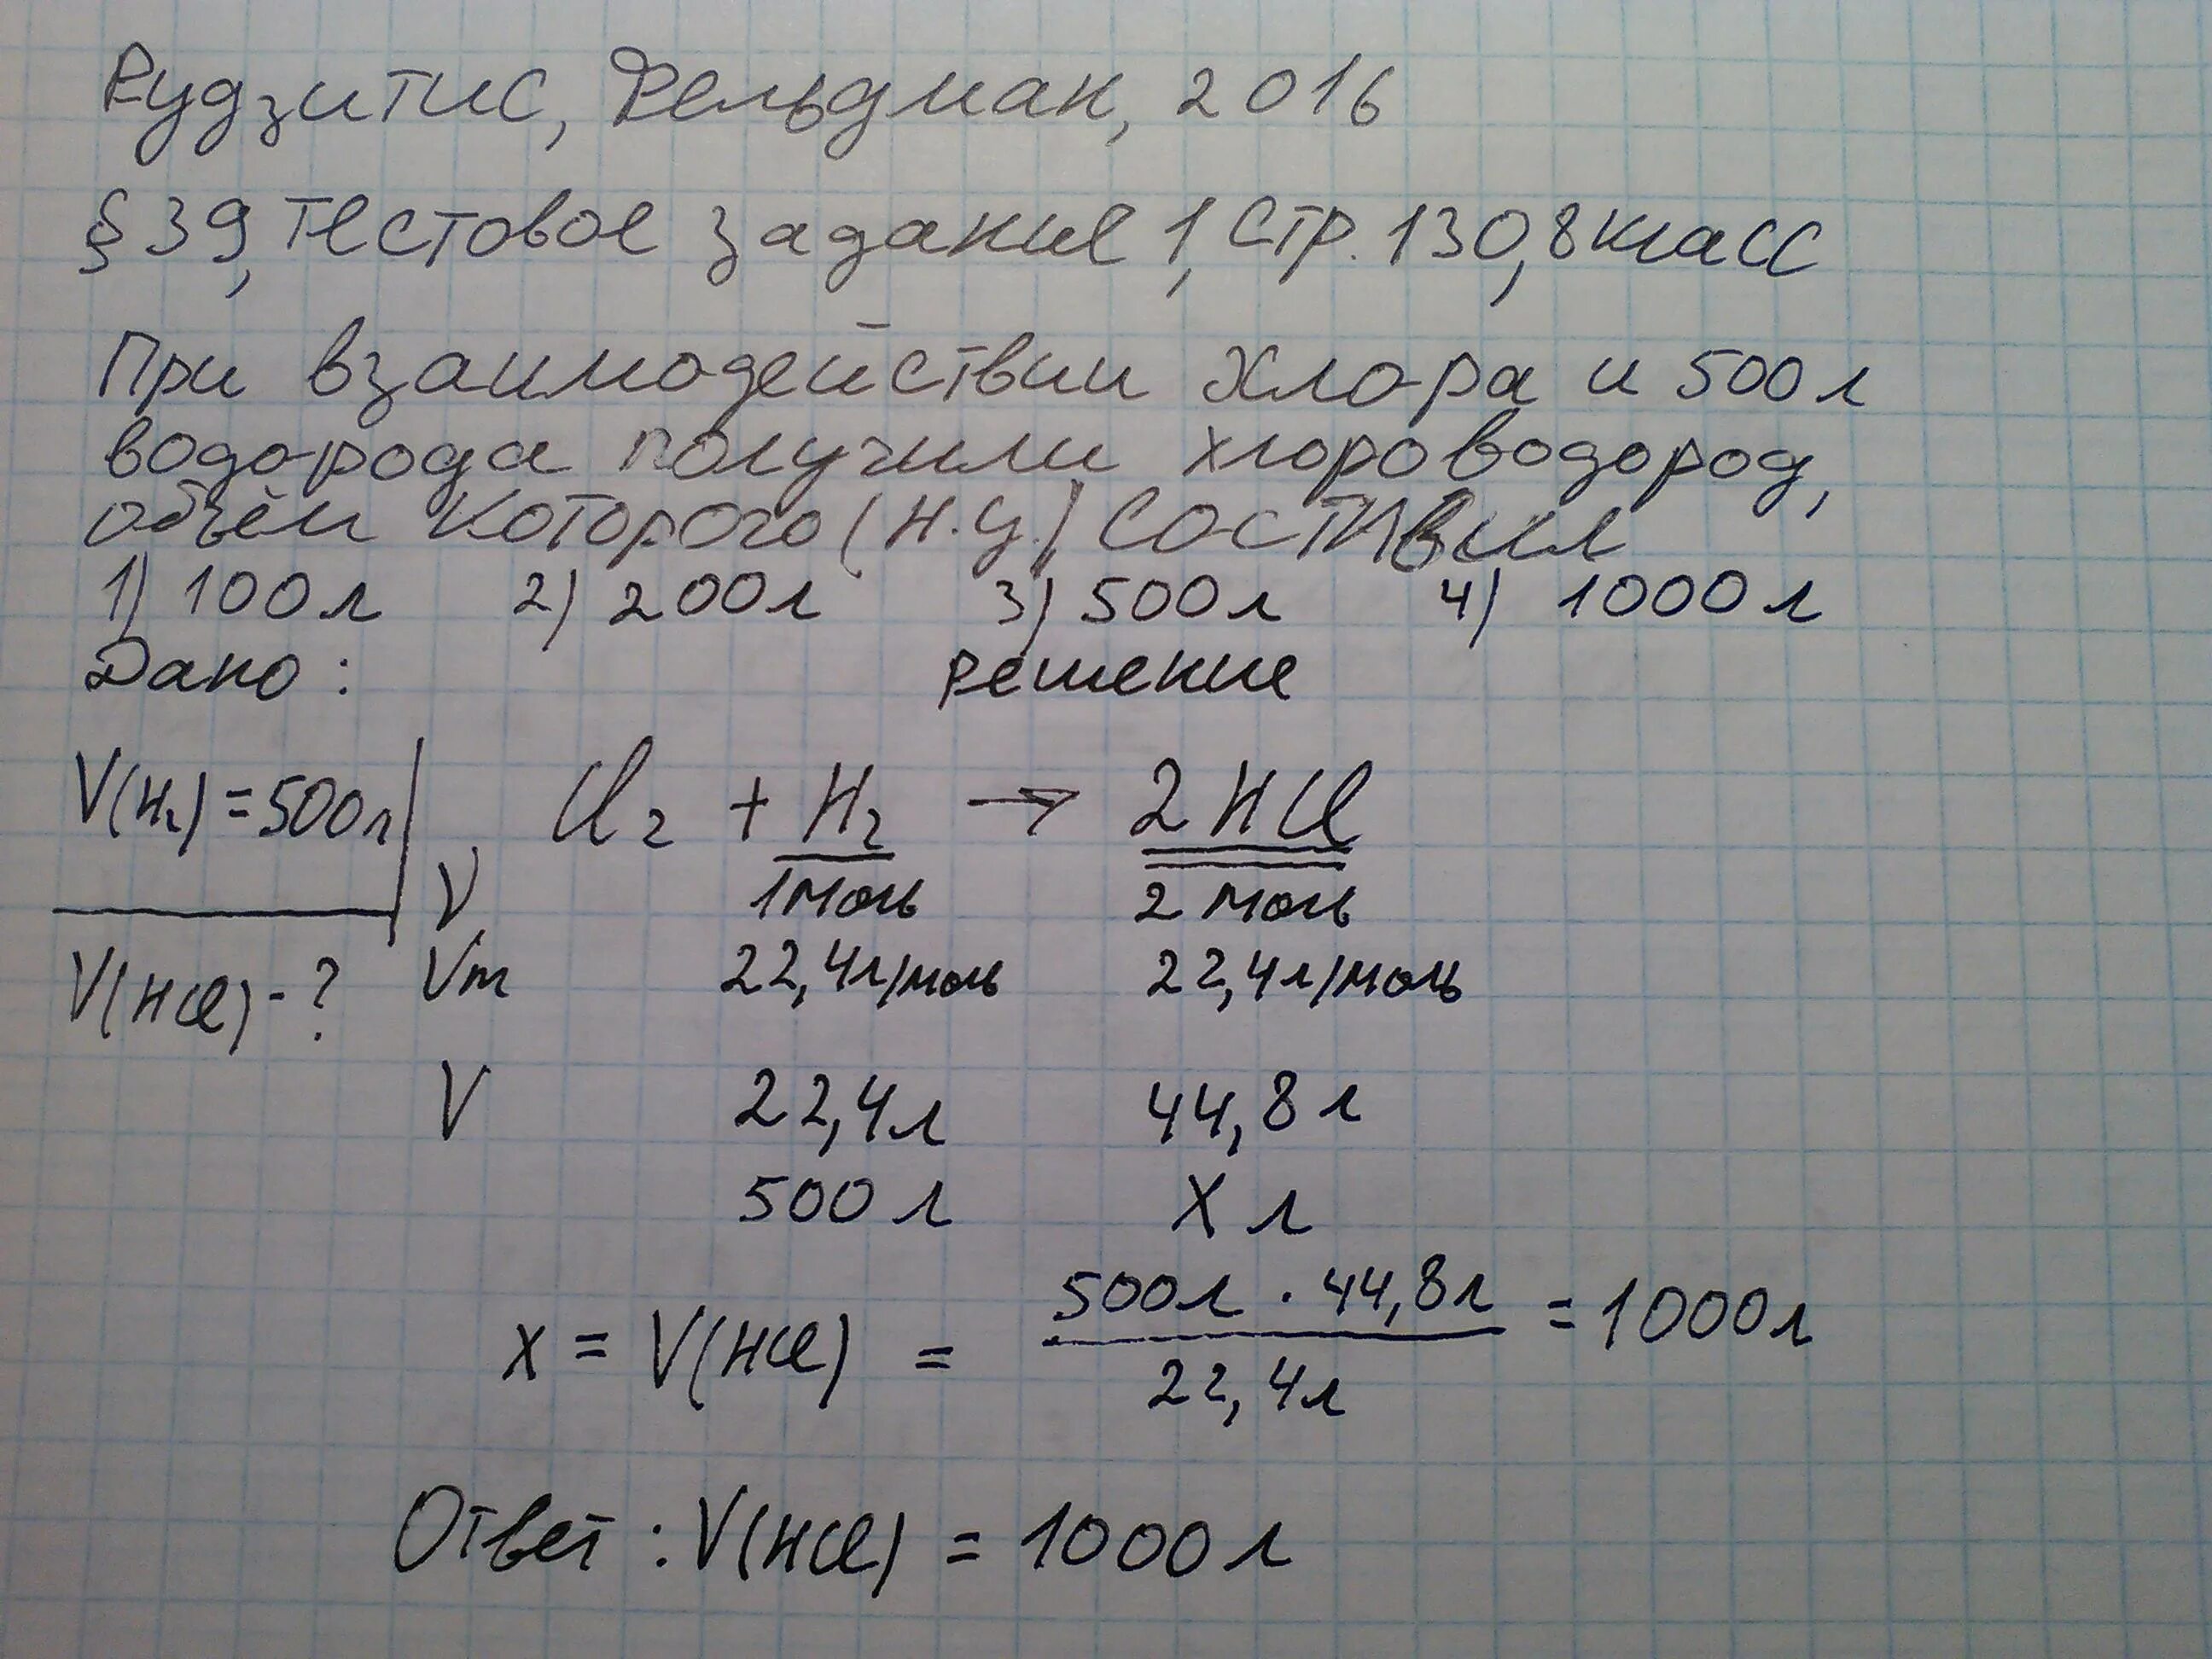 Рудзитис, Фельдман, 2016
§ 39, тестовое задание 1, стр. 130, 8 класс
При взаимодействии хлора и 500 л
водорода получили хлороводород,
объём которого (н.у.) составил
1) 100 л 2) 200 л 3) 500 л 4) 1000 л
Дано: решение
V(H₂) = 500 л Cl₂ + H₂ → 2HCl
ν 1 моль 2 моль
V(HCl) - ? Vm 22,4 л/моль 22,4 л/моль
V 22,4 л 44,8 л
500 л X л
x = V(HCl) = 500 л · 44,8 л / 22,4 л = 1000 л
Ответ: V(HCl) = 1000 л